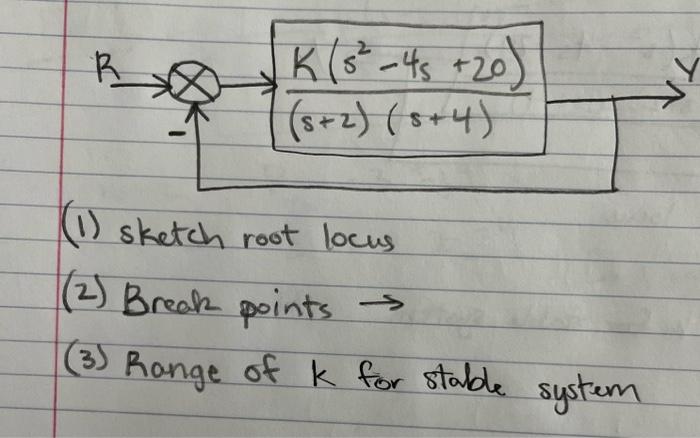 R
K(s² - 4s + 20)
(s+2) (s+4)
Y
-
(1) sketch root locus
(2) Break points →
(3) Range of k for stable system